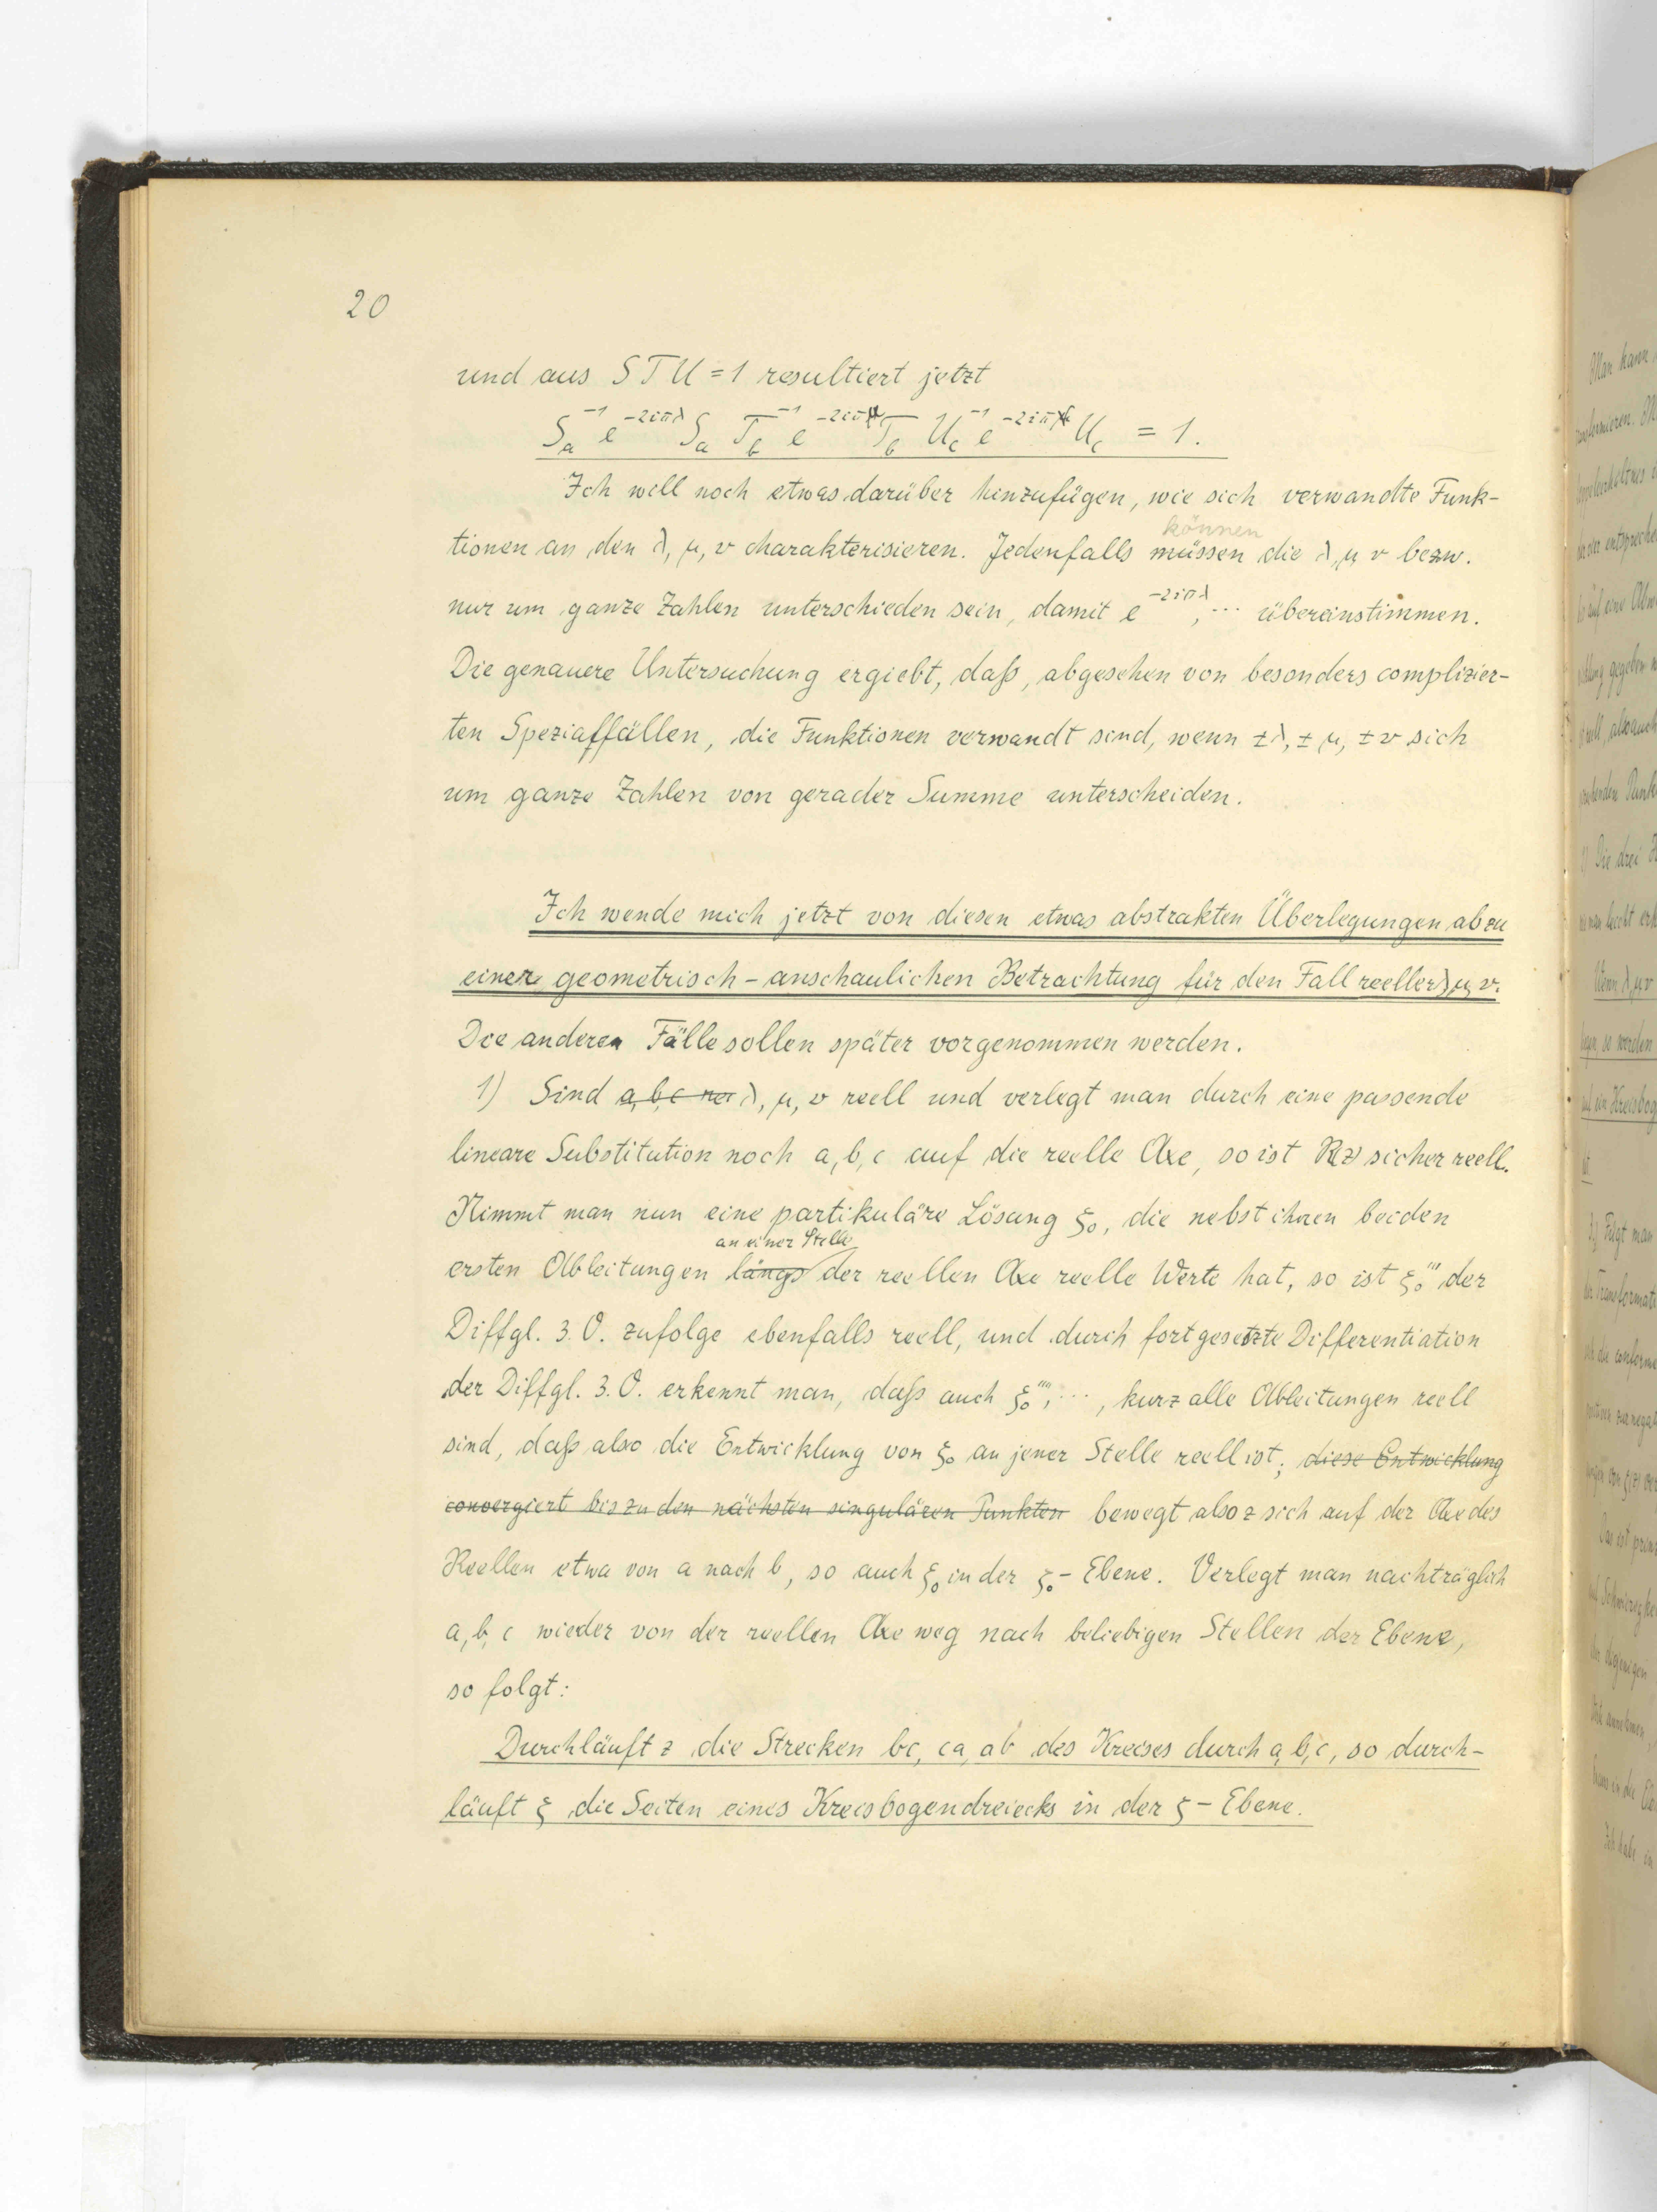 20
und aus S T U = 1 resultiert jetzt
S_a^{-1} e^{-2iπλ} S_a T_b^{-1} e^{-2iπμ} T_b U_c^{-1} e^{-2iπν} U_c = 1.
Ich will noch etwas darüber hinzufügen, wie sich verwandte Funk-
können
tionen an den λ, μ, ν charakterisieren. Jedenfalls müssen die λ, μ, ν bezw.
nur um ganze Zahlen unterschieden sein, damit e^{-2iπλ}, ... übereinstimmen.
Die genauere Untersuchung ergiebt, daß, abgesehen von besonders complizier-
ten Spezialfällen, die Funktionen verwandt sind, wenn ±λ, ±μ, ±ν sich
um ganze Zahlen von gerader Summe unterscheiden.
Ich wende mich jetzt von diesen etwas abstrakten Überlegungen ab zu
einer geometrisch-anschaulichen Betrachtung für den Fall reeller λ, μ, ν.
Die anderen Fälle sollen später vorgenommen werden.
1) Sind a, b, c ree λ, μ, ν reell und verlegt man durch eine passende
lineare Substitution noch a, b, c auf die reelle Axe, so ist R(z) sicher reell.
Nimmt man nun eine partikuläre Lösung ξ₀, die nebst ihren beiden
an einer Stelle
ersten Ableitungen längs der reellen Axe reelle Werte hat, so ist ξ₀''' der
Diffgl. 3. O. zufolge ebenfalls reell, und durch fortgesetzte Differentiation
der Diffgl. 3. O. erkennt man, daß auch ξ₀'''', ..., kurz alle Ableitungen reell
sind, daß also die Entwicklung von ξ₀ an jener Stelle reell ist; diese Entwicklung
convergiert bis zu den nächsten singulären Punkten bewegt also z sich auf der Axe des
Reellen etwa von a nach b, so auch ξ₀ in der ξ₀-Ebene. Verlegt man nachträglich
a, b, c wieder von der reellen Axe weg nach beliebigen Stellen der Ebene,
so folgt:
Durchläuft z die Strecken bc, ca, ab des Kreises durch a, b, c, so durch-
läuft ξ die Seiten eines Kreisbogendreiecks in der ξ-Ebene.